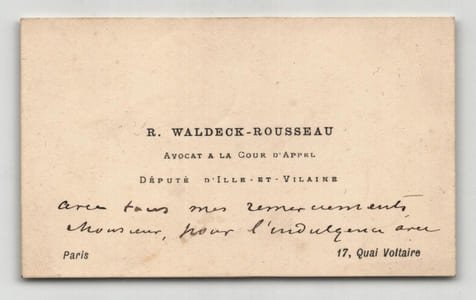 R. WALDECK-ROUSSEAU
AVOCAT A LA COUR D'APPEL
DÉPUTÉ D'ILLE-ET-VILAINE
avec tous mes remerciements
Monsieur, pour l'indulgence avec
Paris 17, Quai Voltaire